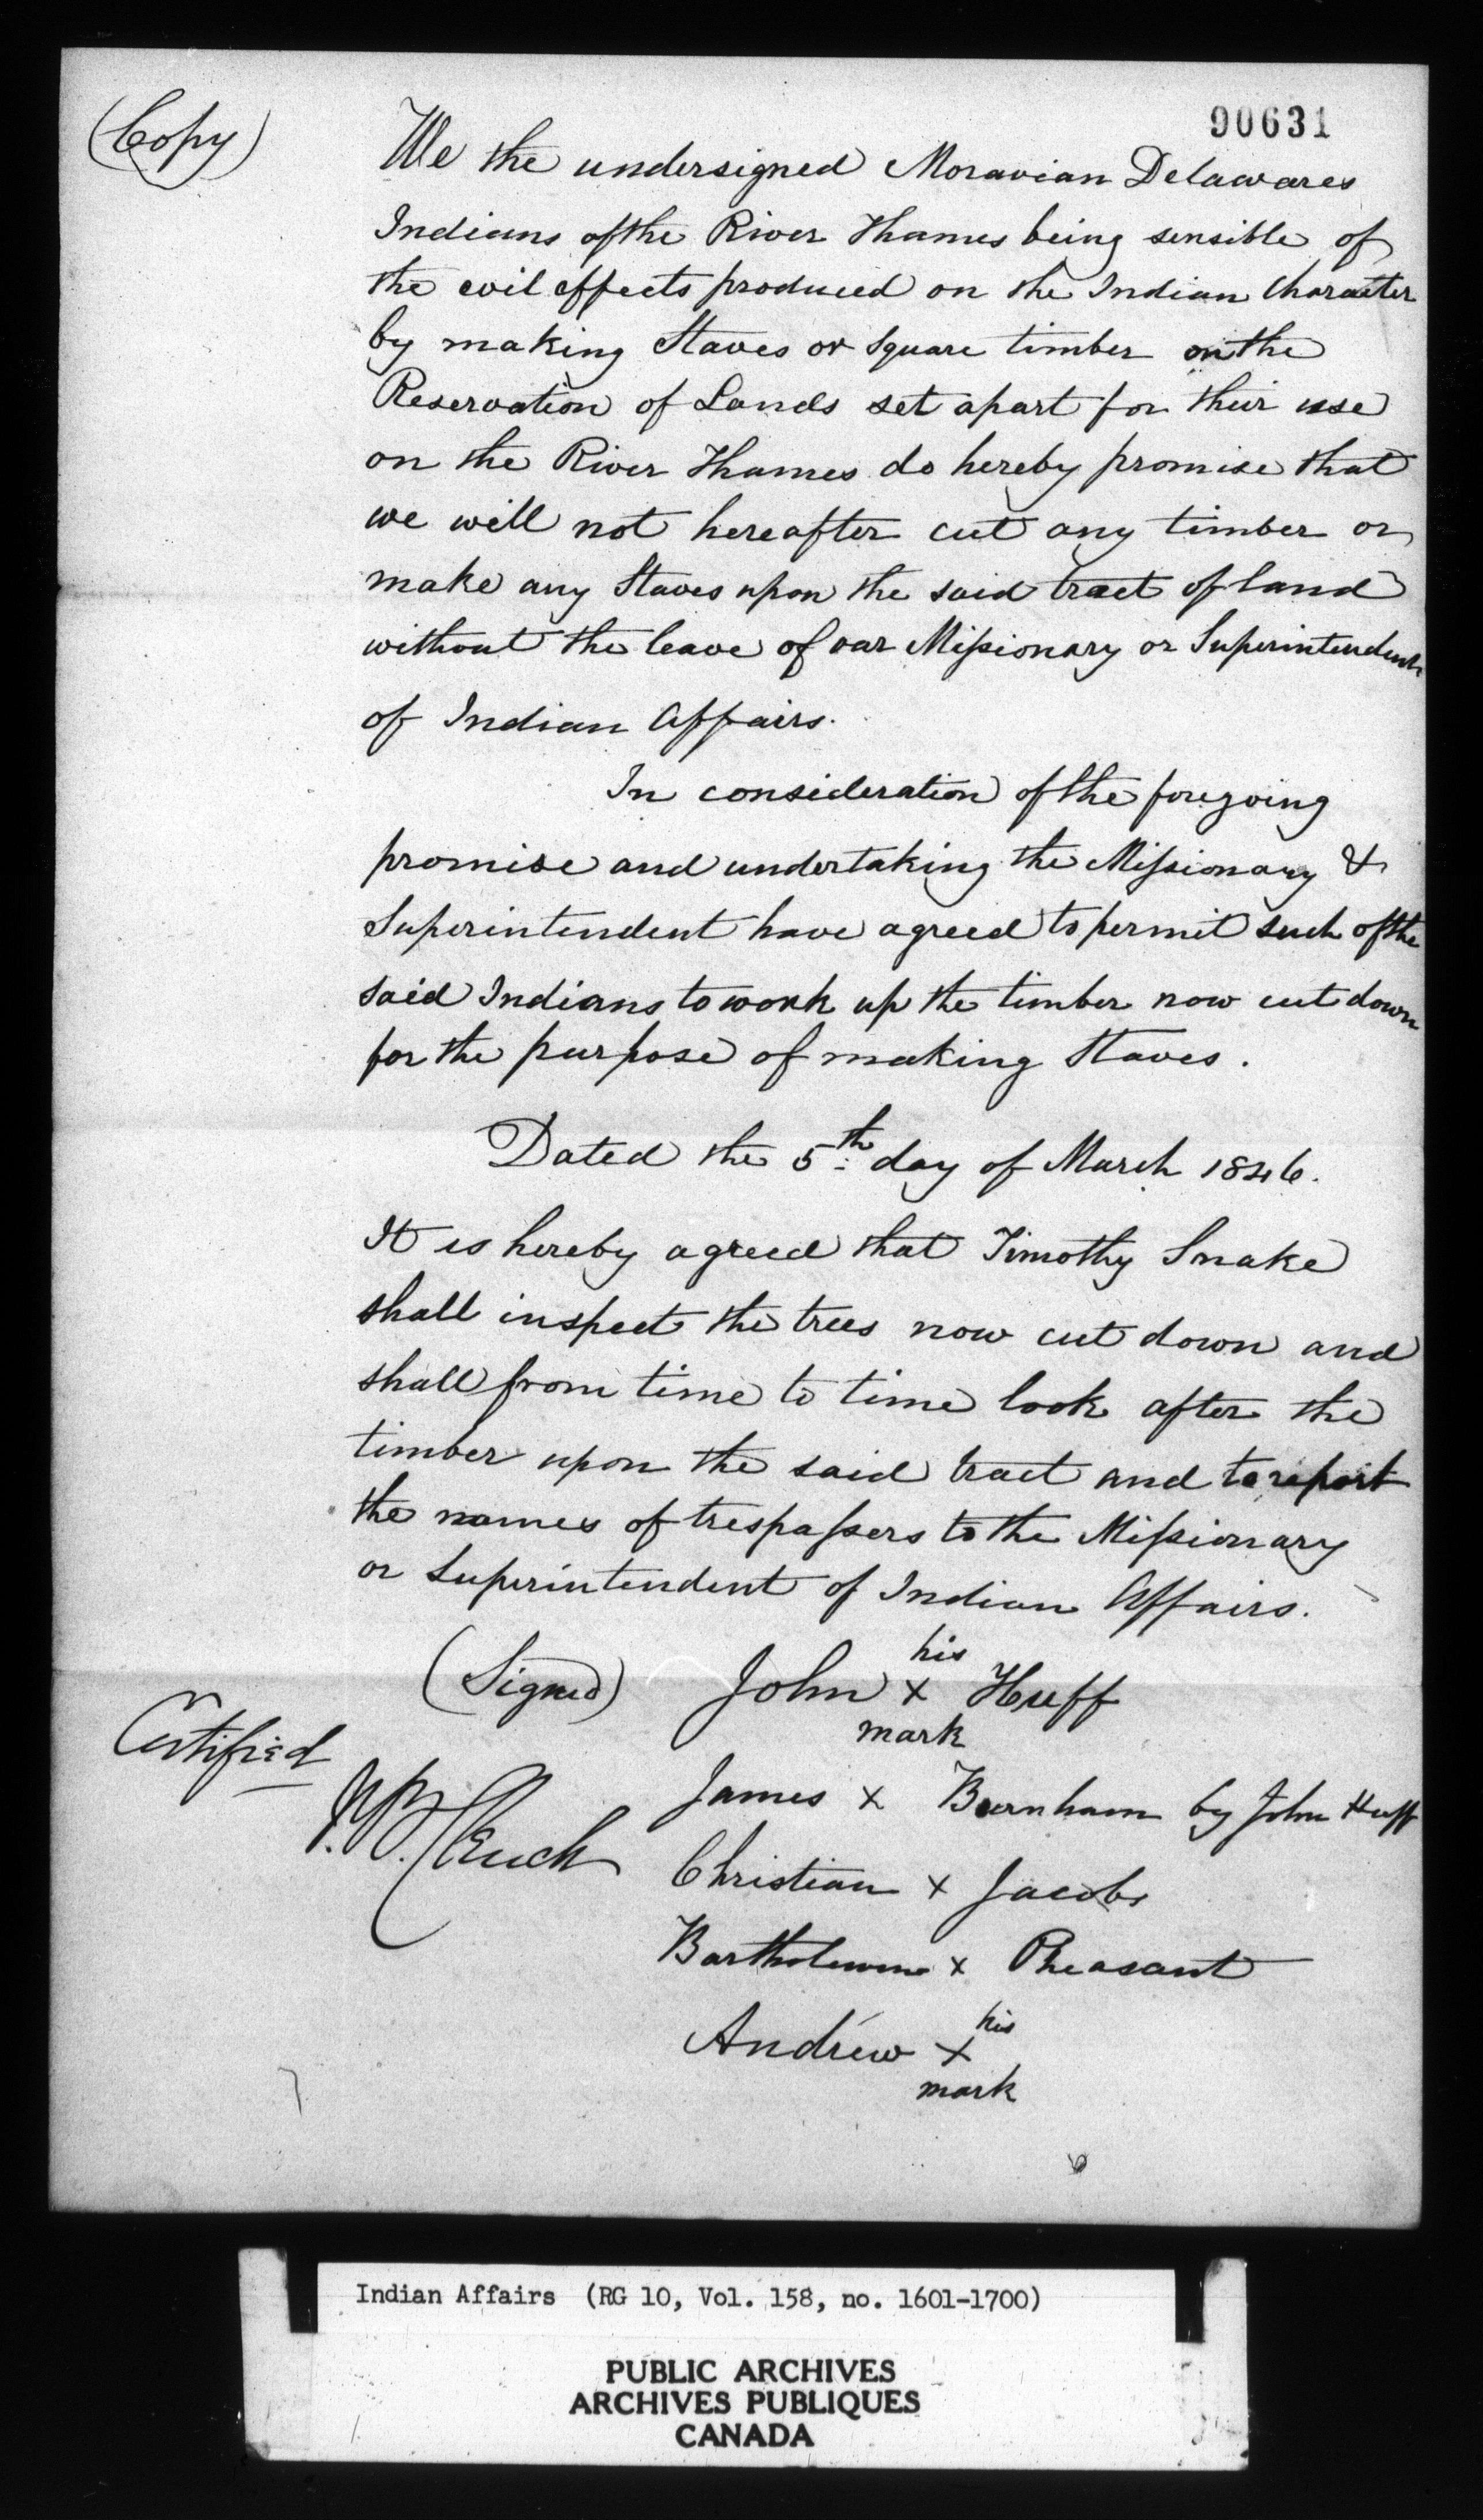 (Copy)
90631
We the undersigned Moravian Delawares
Indians of the River Thames being sensible of
the evil effects produced on the Indian Character
by making Staves or Square timber on the
Reservation of Lands set apart for their use
on the River Thames do hereby promise that
we will not hereafter cut any timber or
make any Staves upon the said tract of land
without the leave of our Missionary or Superintendent
of Indian Affairs.
In consideration of the foregoing
promise and undertaking the Missionary &
Superintendent have agreed to permit such of the
said Indians to work up the timber now cut down
for the purpose of making Staves.
Dated the 5th day of March 1846.
It is hereby agreed that Timothy Snake
shall inspect the trees now cut down and
shall from time to time look after the
timber upon the said tract and to report
the names of trespassers to the Missionary
or Superintendent of Indian Affairs.
(Signed) John his x mark Huff
Certified
James x Burnham by John Huff
Clench
Christian x Jacobs
Bartholemew x Pheasant
Andrew his x mark
Indian Affairs (RG 10, Vol. 158, no. 1601-1700)
PUBLIC ARCHIVES
ARCHIVES PUBLIQUES
CANADA